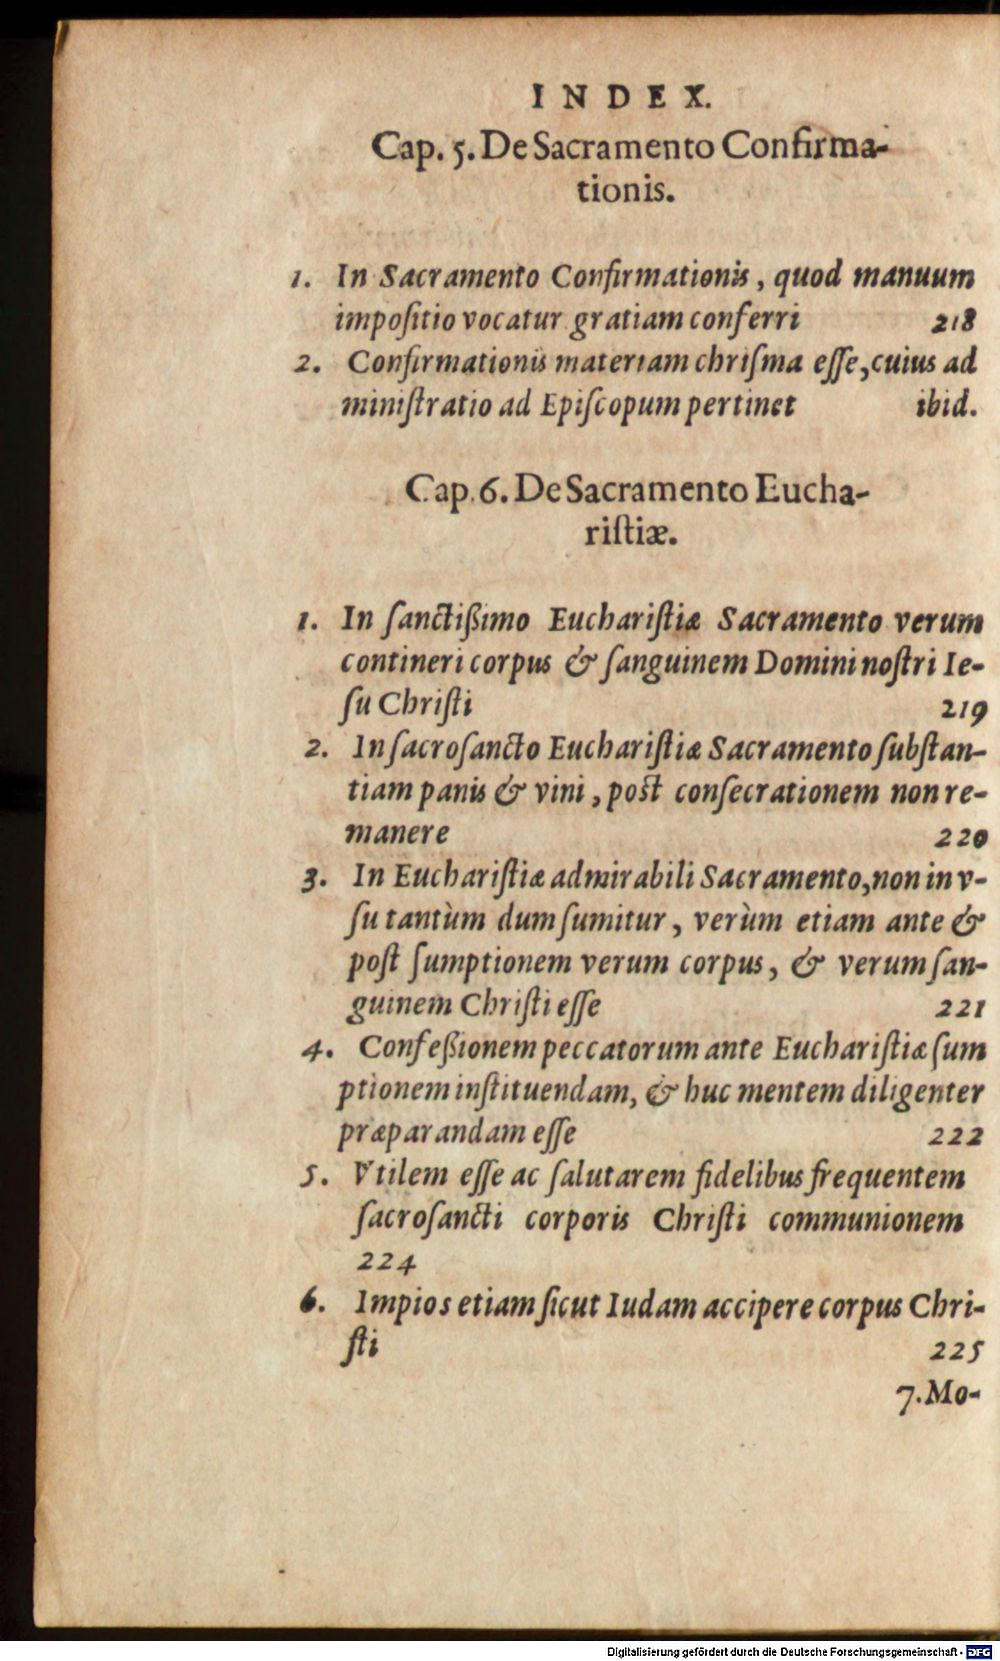 INDEX.
Cap. 5. De Sacramento Confirma-
tionis.
1. In Sacramento Confirmationis, quod manuum
impoſitio vocatur gratiam conferri 218
2. Confirmationis materiam chriſma eſſe, cuius ad
miniſtratio ad Epiſcopum pertinet ibid.
Cap. 6. De Sacramento Eucha-
riſtiæ.
1. In ſanctißimo Euchariſtiæ Sacramento verum
contineri corpus & ſanguinem Domini noſtri Ie-
ſu Chriſti 219
2. In ſacroſancto Euchariſtiæ Sacramento ſubſtan-
tiam panis & vini, poſt conſecrationem non re-
manere 220
3. In Euchariſtiæ admirabili Sacramento, non in v-
ſu tantùm dum ſumitur, verùm etiam ante &
poſt ſumptionem verum corpus, & verum ſan-
guinem Chriſti eſſe 221
4. Confeßionem peccatorum ante Euchariſtiæ ſum
ptionem inſtituendam, & huc mentem diligenter
præparandam eſſe 222
5. Vtilem eſſe ac ſalutarem fidelibus frequentem
ſacroſancti corporis Chriſti communionem
224
6. Impios etiam ſicut Iudam accipere corpus Chri-
ſti 225
7. Mo-
Digitalisierung gefördert durch die Deutsche Forschungsgemeinschaft - DFG